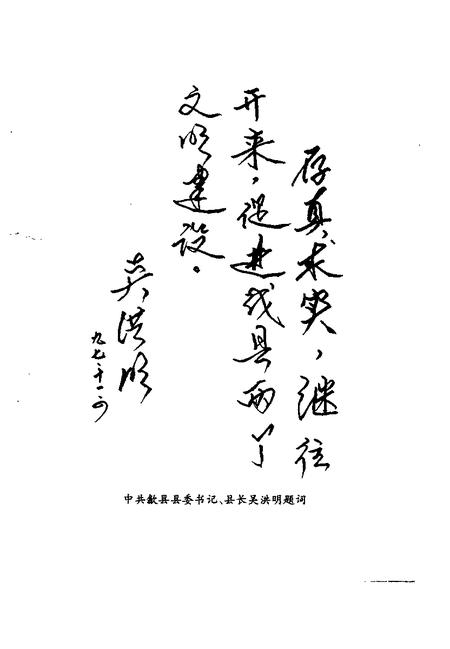 存真求实，继往
开来，促进我县两个
文明建设。
吴洪明
九七.十一.
中共歙县县委书记、县长吴洪明题词